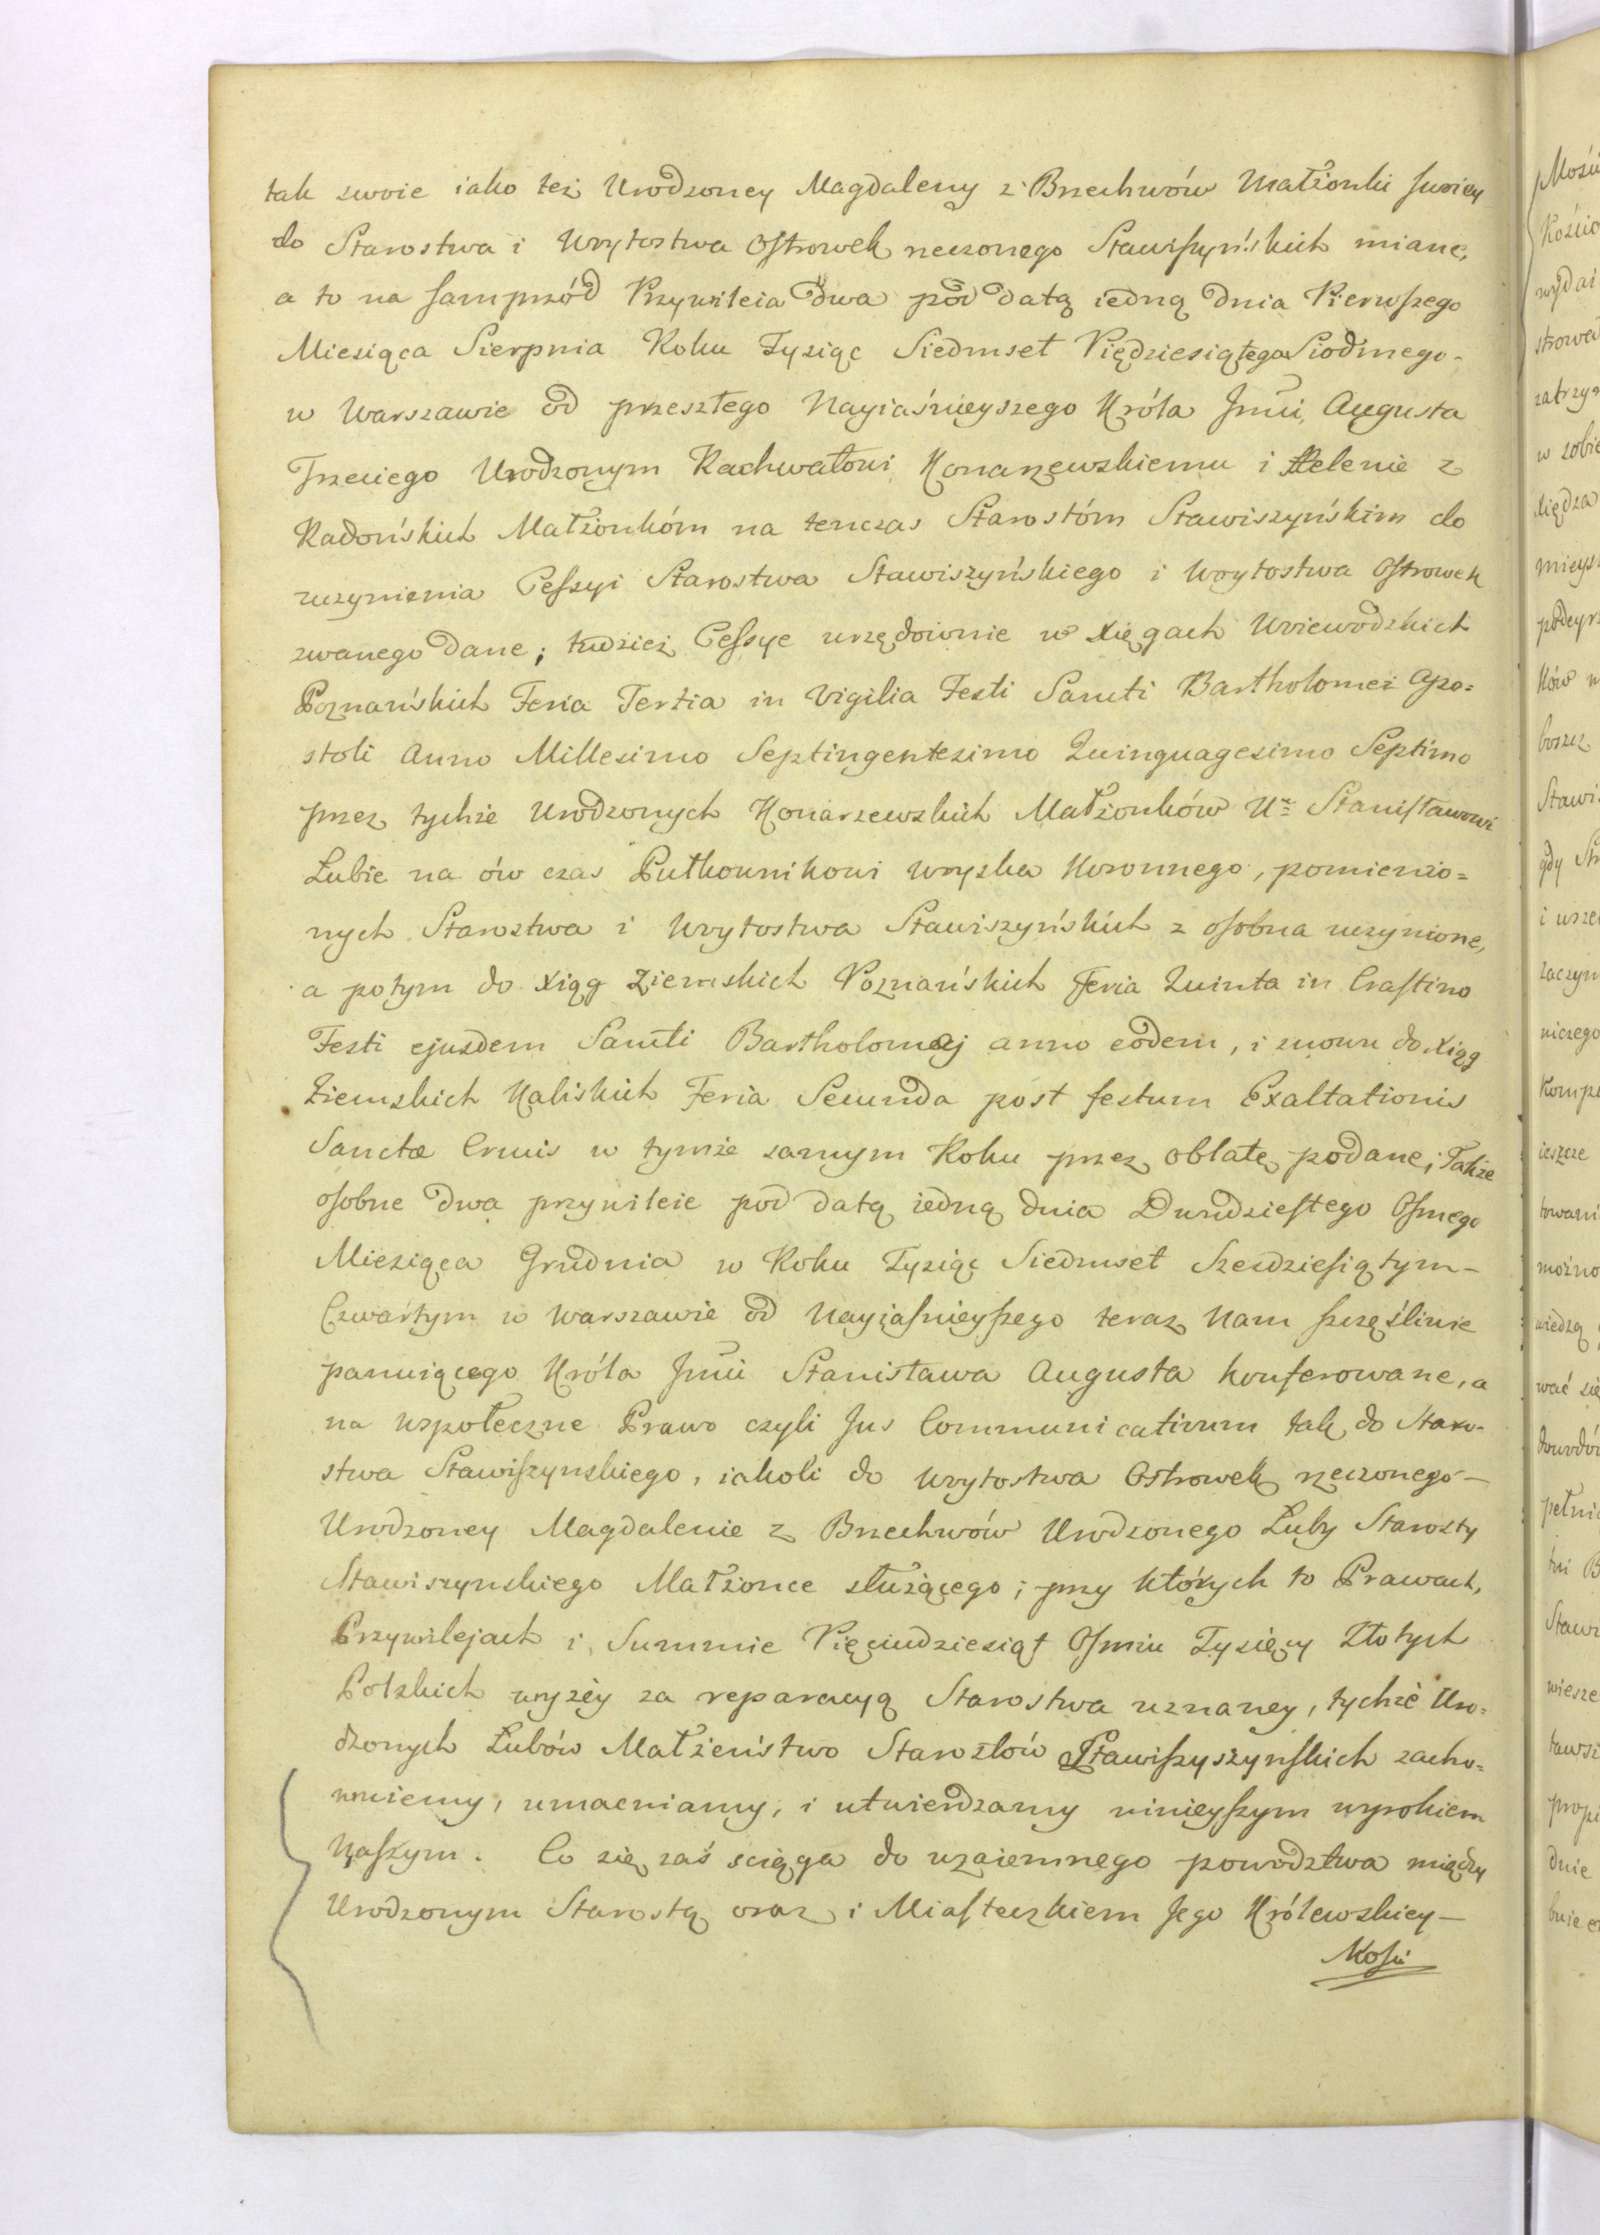 tak swoie iako też Urodzoney Magdaleny z Brzechwów Małżonki swoiey
do Starostwa i Woytostwa Ostrowek rzeczonego Stawiszyńskich miane,
a to na samprzód Przywileia dwa pod datą iedną dnia Pierwszego
Miesiąca Sierpnia Roku Tysiąc Siedmset Pięćdziesiątego Siodmego-
w Warszawie od przeszłego Nayiaśnieyszego Króla Jmci Augusta
Trzeciego Urodzonym Rachwałowi Konarzewskiemu i Helenie z
Radońskich Małżonkóm na tenczas Starostóm Stawiszyńskim do
uczynienia Cessyi Starostwa Stawiszyńskiego i Woytostwa Ostrowek
zwanego dane; tudzież Cessye urzędownie w Xięgach Woiewodzkich
Poznańskich Feria Tertia in Vigilia Festi Sancti Bartholomei Apo=
stoli Anno Millesimo Septingentesimo Quinquagesimo Septimo
przez tychże Urodzonych Konarzewskich Małżonków Ur= Stanisławowi
Łubie na ów czas Pułkownikowi Woyska Koronnego, pomienio=
nych Starostwa i Woytostwa Stawiszyńskich z osobna uczynione,
a potym do Xiąg Ziemskich Poznańskich Feria Quinta in Crastino
Festi ejusdem Sancti Bartholomaej anno eodem, i znowu do Xiąg
Ziemskich Kaliskich Feria Secunda post festum Exaltationis
Sanctæ Crucis w tymże samym Roku przez oblatę podane; Także
osobne dwa przywileie pod datą iedną dnia Dwudziestego Osmego
Miesiąca Grudnia w Roku Tysiąc Siedmset Szesdziesiątym-
Czwartym w Warszawie od Nayiasnieyszego teraz Nam szczęśliwie
panuiącego Króla Jmci Stanisława Augusta konferowane, a
na wspołeczne Prawo czyli Jus Communicativum tak do Staro-
stwa Stawiszynskiego, iakoli do Woytostwa Ostrowek rzeczonego-
Urodzoney Magdalenie z Brzechwów Urodzonego Łuby Starosty
Stawiszynskiego Małżonce służącego; przy których to Prawach,
Przywilejach i Summie Pięciudziesiąt Osmiu Tysięcy Złotych
Polskich wyżey za reparacyą Starostwa uznaney, tychże Uro=
dzonych Łubów Małżeństwo Starostów Stawiszyszyńskich zacho=
wuiemy, umacniamy, i utwierdzamy ninieyszym wyrokiem
Naszym. Co się zaś sciąga do wzaiemnego powodztwa między
Urodzonym Starostą oraz i Miasteczkiem Jego Królewskiey-
Mosci